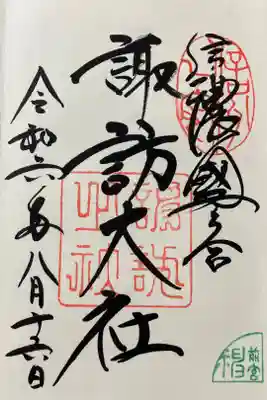 信濃國一之宮
諏訪大社
令和六年八月十六日
前宮